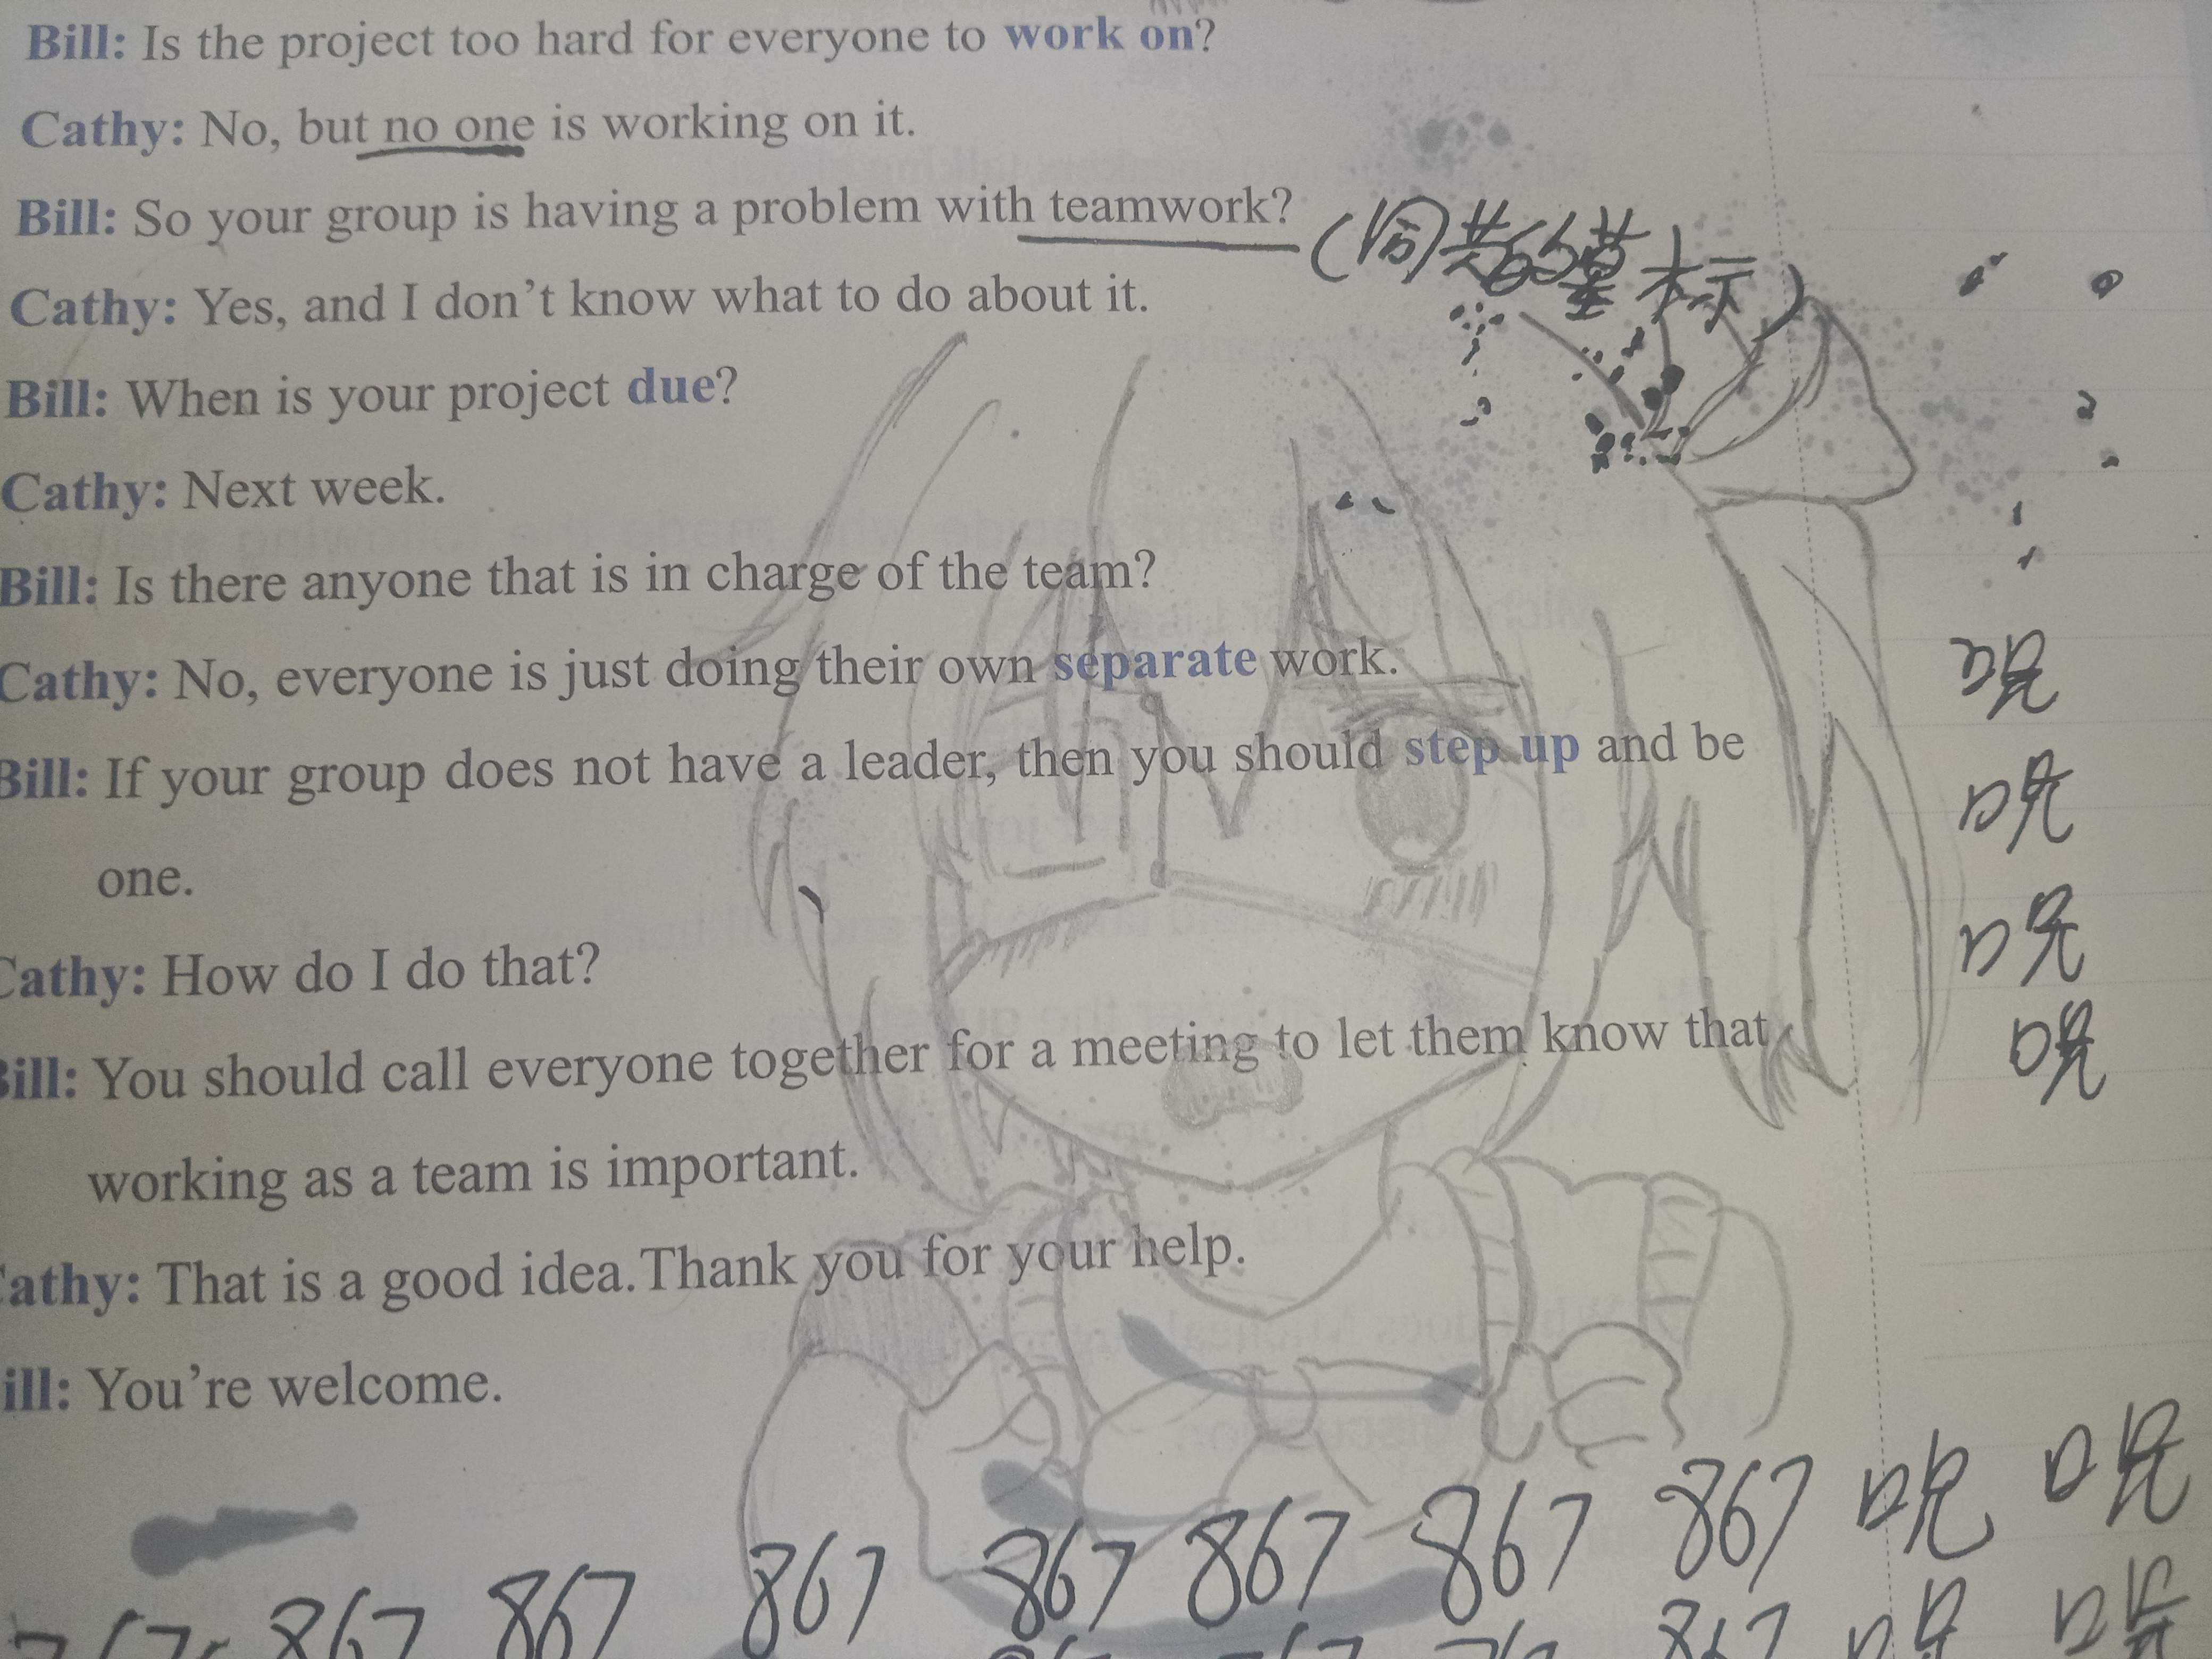 Bill: Is the project too hard for everyone to work on?
Cathy: No, but no one is working on it.
Bill: So your group is having a problem with teamwork? (有共的目标)
Cathy: Yes, and I don’t know what to do about it.
Bill: When is your project due?
Cathy: Next week.
Bill: Is there anyone that is in charge of the team?
Cathy: No, everyone is just doing their own separate work.
Bill: If your group does not have a leader, then you should step up and be
one.
Cathy: How do I do that?
Bill: You should call everyone together for a meeting to let them know that
working as a team is important.
Cathy: That is a good idea.Thank you for your help.
ill: You’re welcome.
867 867 867 867 867 867 867
867